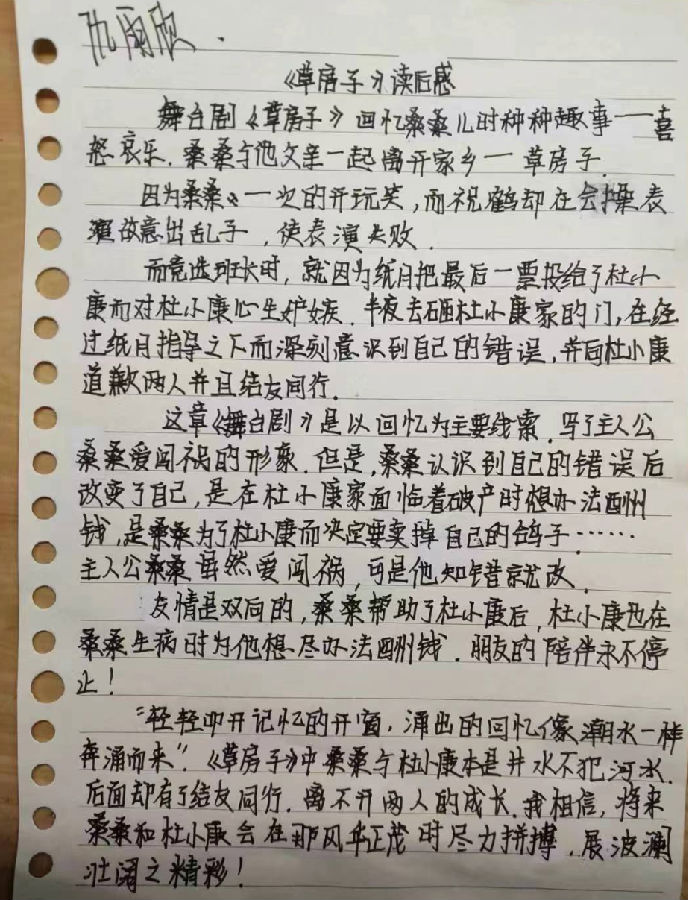 《草房子》读后感
舞台剧《草房子》回忆桑桑儿时种种趣事——喜
怒哀乐，桑桑与他父亲一起离开家乡—草房子．
因为桑桑　一次的开玩笑，而秃鹤却在会操表
演故意出乱子，使表演失败．
而竞选班长时，就因为纸月把最后一票投给了杜小
康而对杜小康心生妒嫉．半夜去砸杜小康家的门，在经
过纸月指导之下而深刻意识到自己的错误，并向杜小康
道歉两人并且结友同行．
这章《舞台剧》是以回忆为主要线索，写了主人公
桑桑爱闯祸的形象．但是，桑桑认识到自己的错误后
改变了自己，是在杜小康家面临着破产时想办法酬
钱，是桑桑为了杜小康而决定要卖掉自己的鸽子……
主人公桑桑虽然爱闯祸，可是他知错就改．
友情是双向的，桑桑帮助了杜小康后，杜小康也在
桑桑生病时为他想尽办法酬钱．朋友的陪伴永不停
止！
“轻轻叩开记忆的开窗，涌出的回忆像潮水一样
奔涌而来”．《草房子》中桑桑与杜小康本是井水不犯河水．
后面却有了结友同行．离不开两人的成长．我相信，将来
桑桑和杜小康会在那风华正茂时尽力拼搏，展波澜
壮阔之精彩！